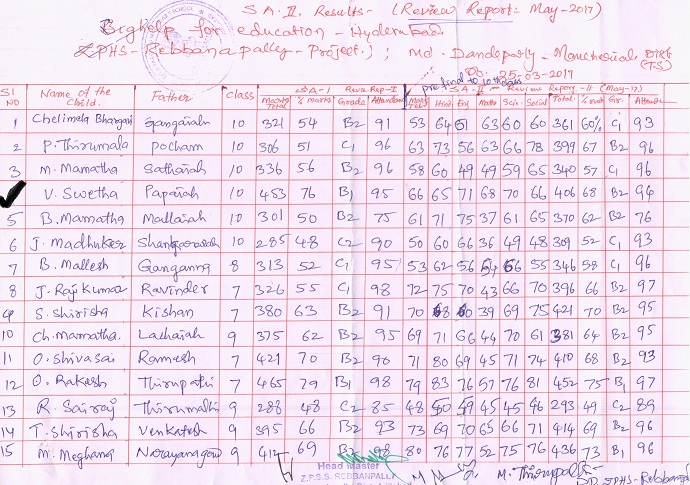 S A. II. Results - (Review Report: May-2017)
Bighelp for education - Hyderabad
ZPHS-Rebbanapally-Project.); Md. Dandepally-Mancherial Dist (TS)
pre final to 10th class Dt. 25-03-2017
Sl NO Name of the Child. Father Class SA-I Rev. Rep-I SA-II- Review Report-II (May-17)
Marks Total % Marks Grade Attendance Hindi Eng Maths Scie. Social Total % Mark Gr. Attend
1 Chelimela Bhargavi Gangaiah 10 321 54 B2 91 53 64 51 63 60 60 361 60% C1 93
2 P. Thirumala Pocham 10 306 51 C1 96 63 73 56 63 66 78 399 67 B2 96
3 M. Mamatha Sathaiah 10 336 56 B2 96 58 60 49 49 59 65 340 57 C1 96
V. Swetha Papaiah 10 453 76 B1 95 66 65 71 68 70 66 406 68 B2 94
5 B. Mamatha Mallaiah 10 301 50 B2 75 61 71 75 37 61 65 370 62 B2 76
6 J. Madhuker 10 285 48 C2 90 50 60 66 36 49 48 309 52 C1 93
7 B. Mallesh Ganganna 8 313 52 C1 95 53 62 56 54 66 55 346 58 C1 96
8 J. Raj Kumar Ravinder 7 326 55 C1 98 72 75 70 43 66 70 396 66 B2 97
9 S. Shirisha Kishan 7 380 63 B2 91 70 68 60 39 69 75 421 70 B2 95
10 Ch. Mamatha Lachaiah 9 375 62 B2 95 69 71 66 44 70 61 381 64 B2 95
11 O. Shivasai Ramesh 7 421 70 B2 90 71 80 69 45 71 74 410 68 B2 93
12 O. Rakesh Thirupathi 7 465 79 B1 98 79 83 76 57 76 81 452 75 B1 97
13 R. Sairaj Thirumallu 9 288 48 C2 85 48 60 49 45 45 46 293 49 C2 89
14 T. Shirisha Venkatesh 9 395 66 B2 93 73 69 70 65 66 71 414 69 B2 96
15 M. Meghana Narayanagoud 9 412 69 B2 98 80 76 77 52 75 76 436 73 B1 96
Head Master
Z.P.S.S. REBBANPALLY
M. Thirupathi
ZPHS-Rebbanapally